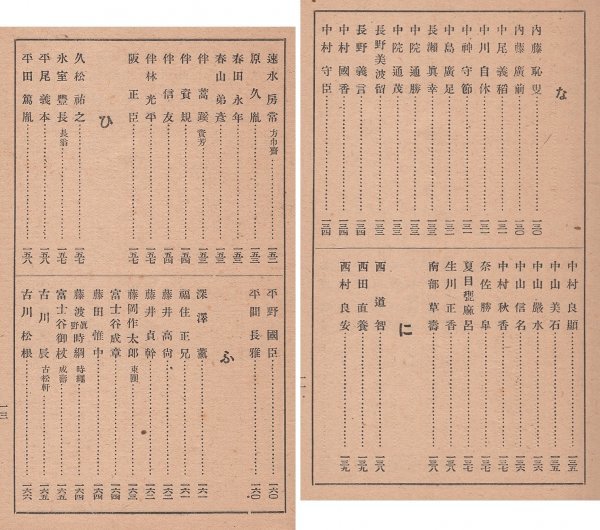 な
内藤恥叟……一三〇
内藤廣前……一三〇
中尾義稻……一三一
中川自休……一三一
中神守節……一三二
中島廣足……一三二
長瀬眞幸……一三三
中院通茂……一三三
中院通勝……一三三
長野美波留……一三三
長野義言……一三四
中村國香……一三四
中村守臣……一三四
中村良顯……一三五
中山美石……一三五
中山嚴水……一三六
中山信名……一三六
中村秋香……一三七
奈佐勝皐……一三七
夏目甕麻呂……一三七
生川正香……一三八
南部草壽……一三八
に
西道智……一三八
西田直養……一三九
西村良安……一三九
速水房常 方巾齋……一五二
原久胤……一五二
春田永年……一五三
春山弟彦……一五三
伴蒿蹊 資芳……一五三
伴資規……一五四
伴信友……一五四
伴林光平……一五七
阪正臣……一五七
ひ
久松祐之……一五七
氷室豐長 長翁……一五七
平尾義本……一五八
平田篤胤……一五八
平野國臣……一六〇
平間長雅……一六〇
ふ
深澤薫……一六一
福住正兄……一六一
藤井高尙……一六二
藤井貞幹……一六二
藤岡作太郎 東圃……一六三
富士谷成章……一六四
藤田惟中……一六四
藤波眞野時綱 時繩……一六四
富士谷御杖 成壽……一六五
古川辰 古松軒……一六五
古川松根……一六六
一三